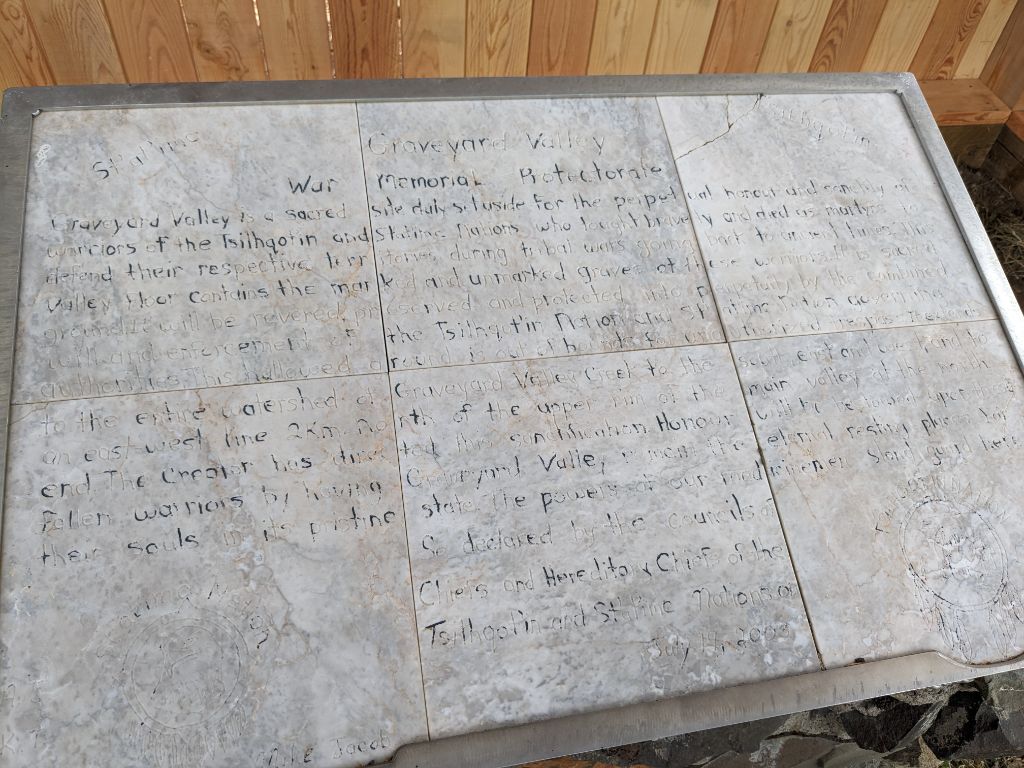 St'at'imc Graveyard Valley Tsilhqotin
War Memorial Protectorate
Graveyard Valley is a sacred site duly set aside for the perpetual honour and sanctity of
warriors of the Tsilhqotin and St'at'imc Nations who fought bravely and died as martyrs to
defend their respective territories during tribal wars going back to ancient times. This
Valley floor contains the marked and unmarked graves of these warriors. It is sacred
ground. It will be revered, preserved and protected into perpetuity by the combined
will and enforcement of the Tsilhqotin Nation and St'at'imc Nation governing
authorities. This hallowed ground is out of bounds for
to the entire watershed of Graveyard Valley Creek to the south east and
an east-west line 2km north of the upper rim of the main valley at the north
end. The Creator has directed this sanctification. Honour will be bestowed upon
fallen warriors by having Graveyard Valley remain the eternal resting place for
their souls in its pristine state. The powers of our medicine men stand guard here.
So declared by the councils of
Chiefs and Hereditary Chiefs of the
Tsilhqotin and St'at'imc Nations on
July 14, 2003
Jacob